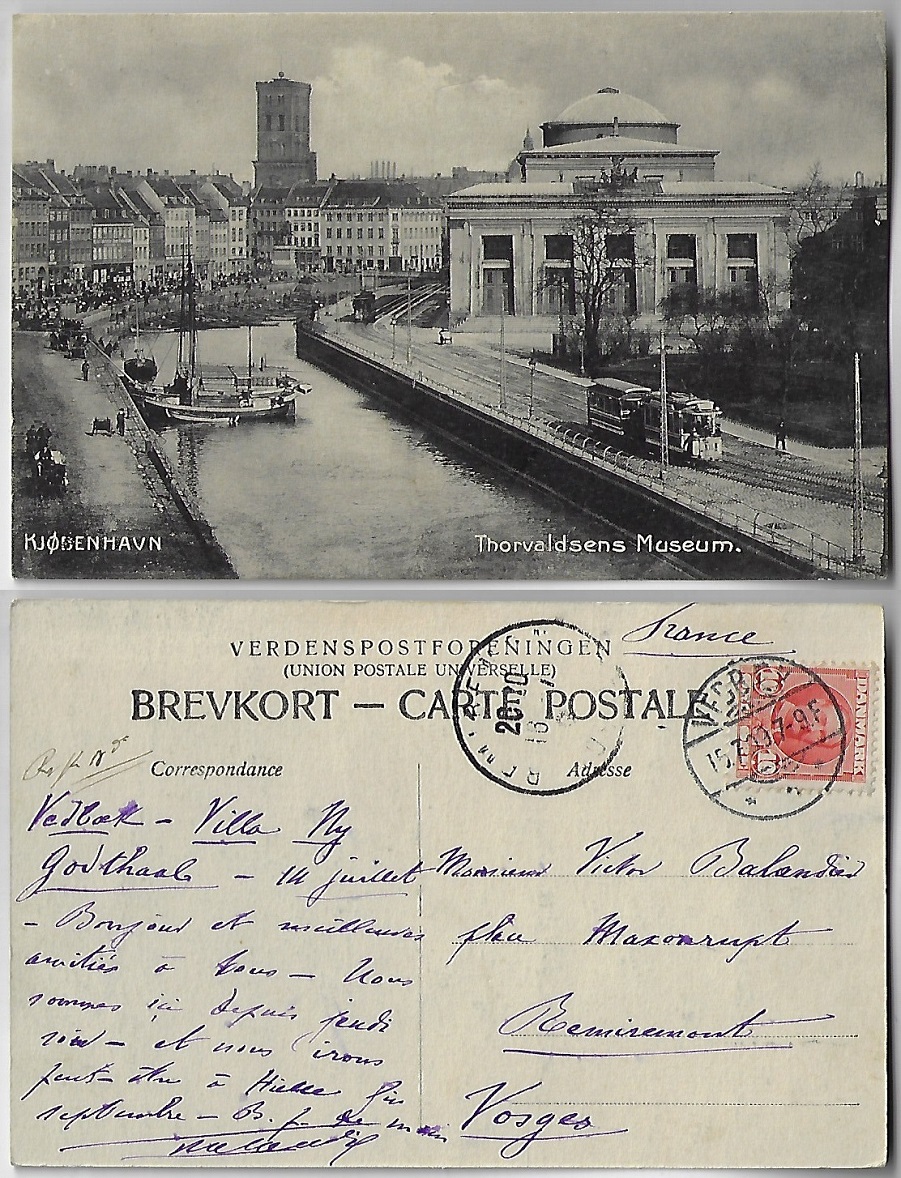 KJØBENHAVN
Thorvaldsens Museum.
VERDENSPOSTFORENINGEN
(UNION POSTALE UNIVERSELLE)
BREVKORT — CARTE POSTALE
France
Correspondance
Adresse
DANMARK
10
VEDBÆK
15.7.10.7-9F
REMIREMONT
20 10
18
Vedbæk - Villa Ny
Godthaab - 14 juillet
- Bonjour et meilleures
amitiés à tous - Nous
sommes ici depuis jeudi
soir - et nous irons
peut-être à Hielle fin
septembre - B.
Monsieur Victor Balandier
Maxonrupt
Remiremont
Vosges